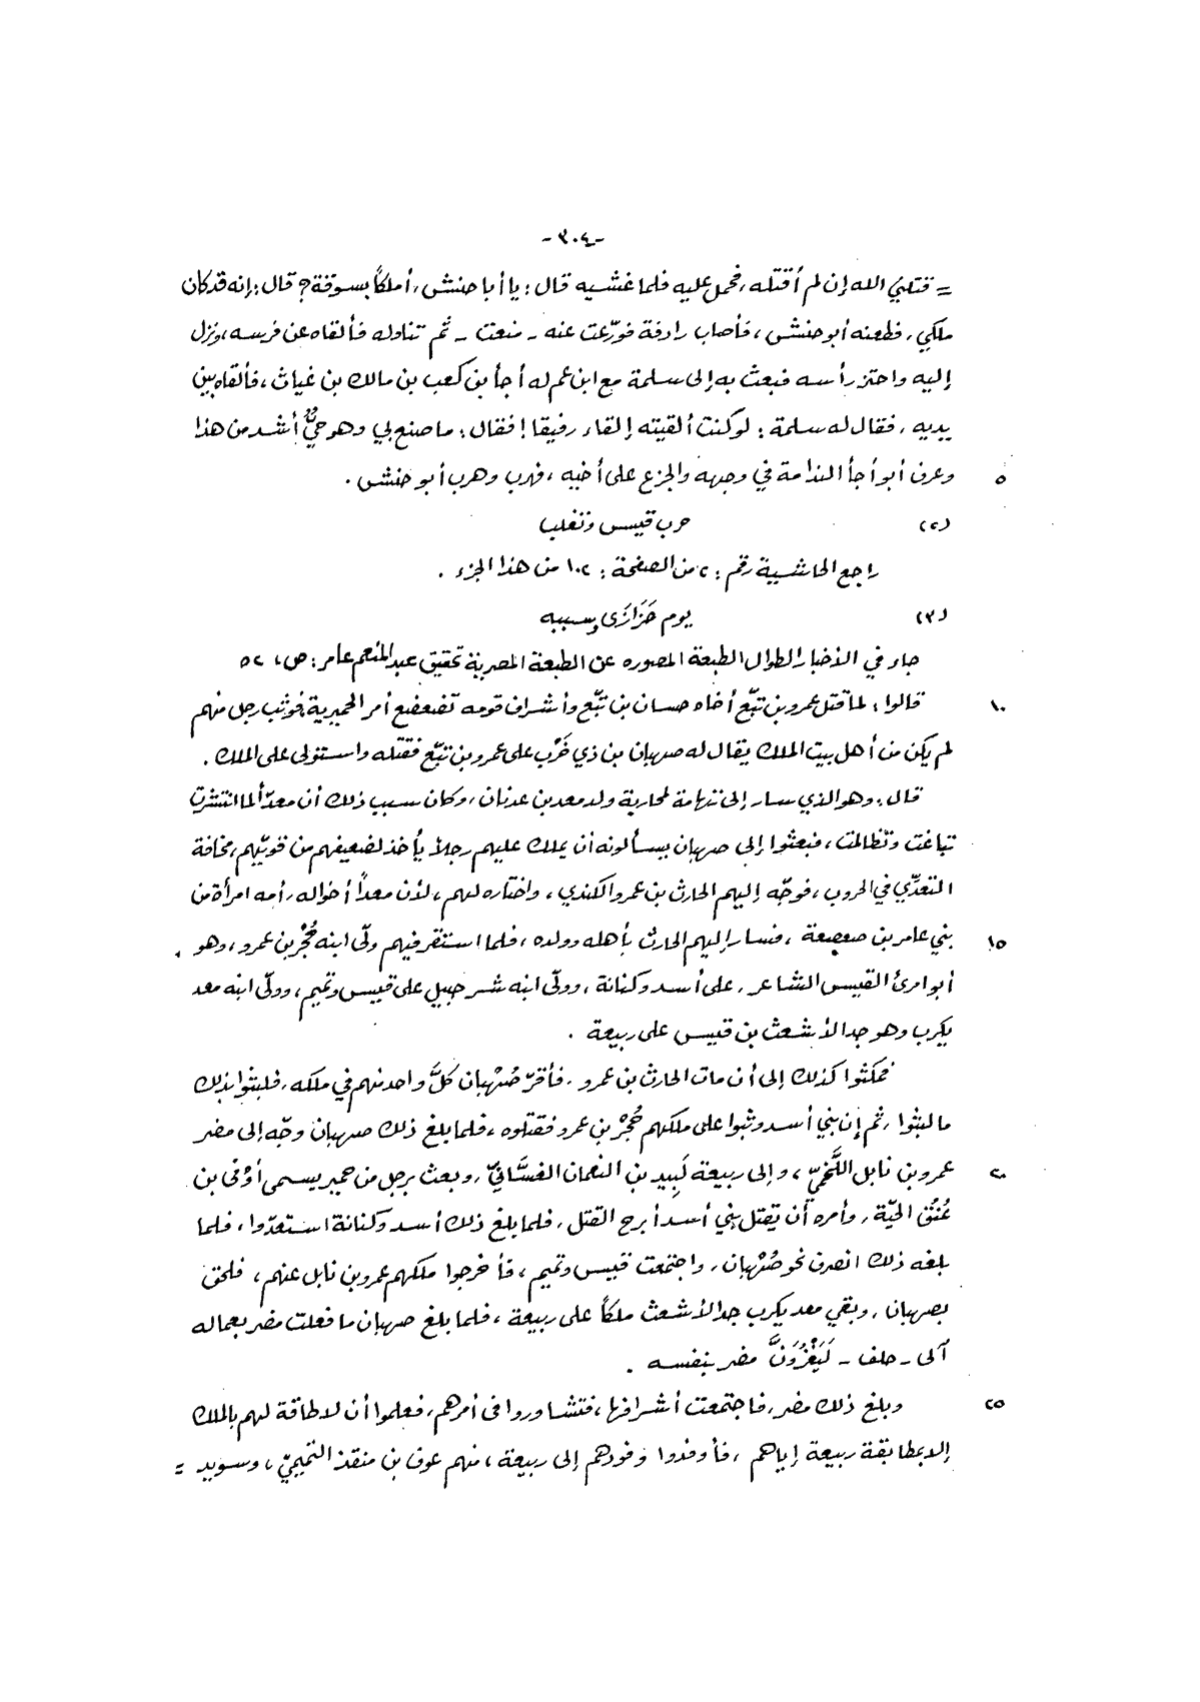 -٣٠٤-
= قتلني الله إن لم أقتله، فحمل عليه فلما غشيه قال: يا أبا حنش، أملكاً بسوقة؟ قال: إنه قد كان
ملكي، فطعنه أبو حنش، فأصاب رادفة فورّعت عنه - منعت - ثم تناوله فألقاه عن فرسه، ونزل
إليه واحتز رأسه فبعث به إلى سلمة مع ابن عم له أجأ بن كعب بن مالك بن غياث، فألقاه بين
يديه، فقال له سلمة: لو كنت ألقيته إلقاء رفيقا! فقال: ما صنع بي وهو حيٌّ أشد من هذا
٥ وعرف أبو أجأ الندامة في وجهه والجزع على أخيه، فهرب وهرب أبو حنش.
(٢) حرب قيس وتغلب
راجع الحاشية رقم: ٢ من الصفحة: ١٠٢ من هذا الجزء.
(٣) يوم خَزَازَى وسببه
جاء في الأخبار الطوال الطبعة المصوره عن الطبعة المصرية تحقيق عبد المنعم عامر: ص، ٥٢
١٠ قالوا: لما قتل عمرو بن تبّع أخاه حسان بن تبّع وأشراف قومه تضعضع أمر الحميرية، فوثب رجل منهم
لم يكن من أهل بيت الملك يقال له صهبان بن ذي خَرْب على عمرو بن تبّع فقتله واستولى على الملك.
قال: وهو الذي سار إلى تهامة لمحاربة ولد معد بن عدنان، وكان سبب ذلك أن معدّاً لما انتشرت
تباغت وتظالمت، فبعثوا إلى صهبان يسألونه أن يملك عليهم رجلاً يأخذ لضعيفهم من قويّهم، مخافة
التعدّي في الحروب، فوجّه إليهم الحارث بن عمرو الكندي، واختاره لهم، لأن معداً أخواله، أمه امرأة من
١٥ بني عامر بن صعصعة، فسار إليهم الحارث بأهله وولده، فلما استقر فيهم ولّى ابنه حُجْر بن عمرو، وهو
أبو امرئ القيس الشاعر، على أسد وكنانة، وولّى ابنه شرحبيل على قيس وتميم، وولّى ابنه معد
يكرب وهو جد الأشعث بن قيس على ربيعة.
فمكثوا كذلك إلى أن مات الحارث بن عمرو، فأقرّ صُهْبان كلَّ واحد منهم في ملكه، فلبثوا بذلك
ما لبثوا، ثم إن بني أسد وثبوا على ملكهم حُجْر بن عمرو فقتلوه، فلما بلغ ذلك صهبان وجّه إلى مضر
٢٠ عمرو بن نابل اللَّخميّ، وإلى ربيعة لَبِيد بن النعمان الغسَّانيّ، وبعث برجل من حمير يسمى أوْفى بن
عُنُق الحيّة، وأمره أن يقتل بني أسد أبرح القتل، فلما بلغ ذلك أسد وكنانة استعدّوا، فلما
بلغه ذلك انصرف نحو صُهْبان، واجتمعت قيس وتميم، فأخرجوا ملكهم عمرو بن نابل عنهم، فلحق
بصهبان، وبقي معد يكرب جد الأشعث ملكاً على ربيعة، فلما بلغ صهبان ما فعلت مضر بعماله
آلى - حلف - لَيَغْزُوَنَّ مضر بنفسه.
٢٥ وبلغ ذلك مضر، فاجتمعت أشرافها، فتشاوروا في أمرهم، فعلموا أن لا طاقة لهم بالملك
إلا بمطابقة ربيعة إياهم، فأوفدوا وفودهم إلى ربيعة، منهم عوف بن منقذ التميميّ، وسويد =